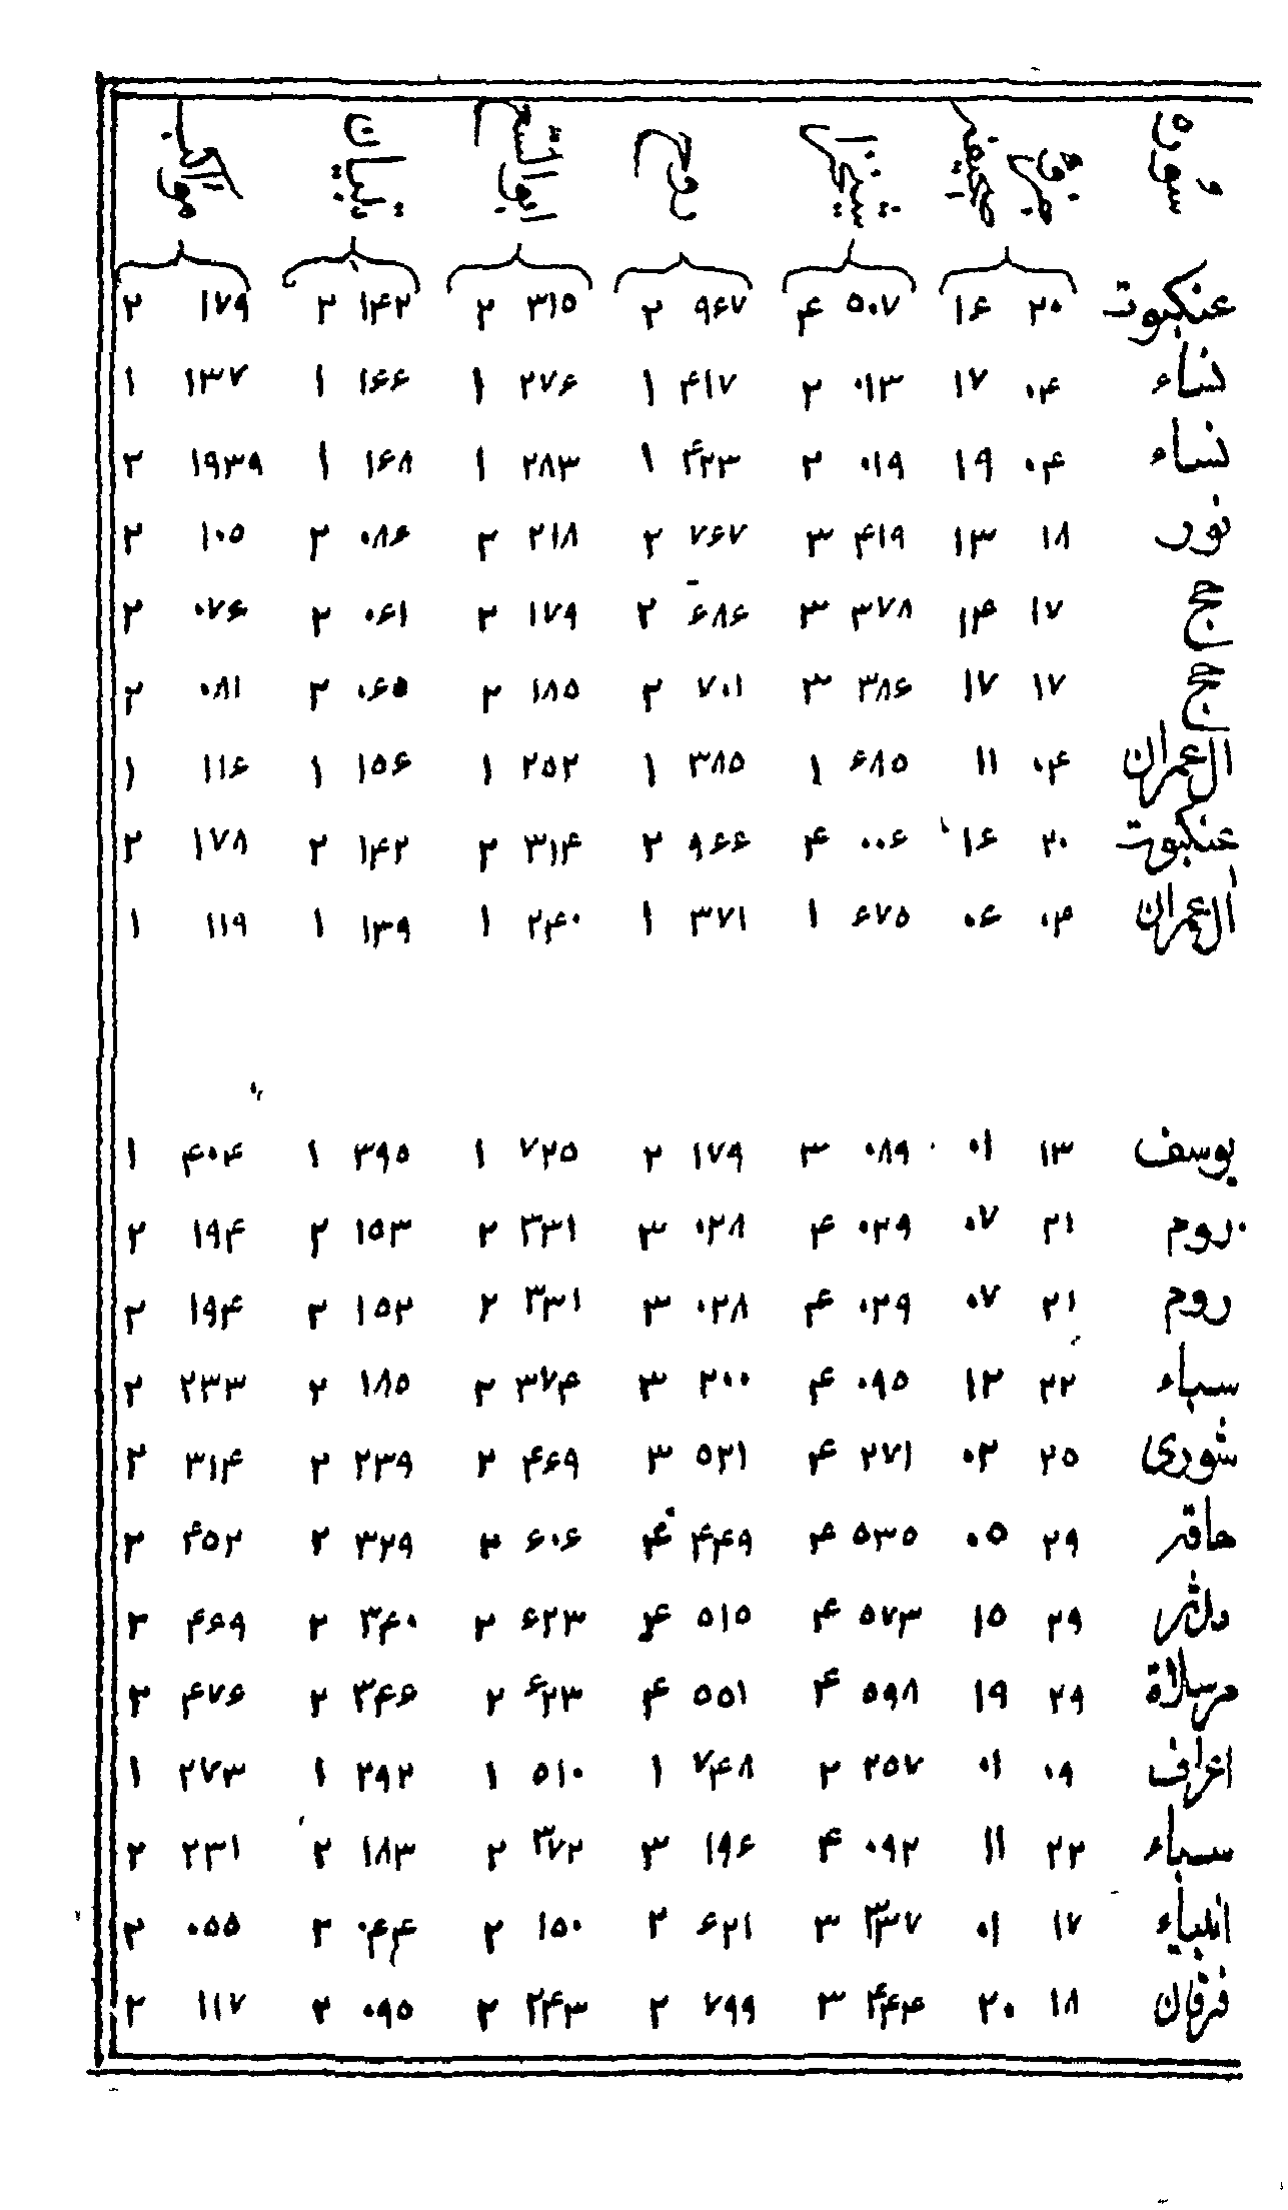 سورة جزو صحیفه شیخزاده روح ابو السعود تبیان مواکب
عنکبوت ۲۰ ۱۶ ۵۰۷ ۴ ۹۶۷ ۲ ۳۱۵ ۲ ۱۴۲ ۲ ۱۷۹ ۲
نساء ۰۴ ۱۷ ۰۱۳ ۲ ۴۱۷ ۱ ۲۷۶ ۱ ۱۶۶ ۱ ۱۳۷ ۱
نساء ۰۴ ۱۹ ۰۱۹ ۲ ۴۲۳ ۱ ۲۸۳ ۱ ۱۶۸ ۱ ۱۹۳۹ ۲
نور ۱۸ ۱۳ ۴۱۹ ۳ ۷۶۷ ۲ ۲۱۸ ۲ ۰۸۶ ۲ ۱۰۵ ۲
حج ۱۷ ۱۴ ۳۷۸ ۳ ۶۸۶ ۲ ۱۷۹ ۲ ۰۶۱ ۲ ۰۷۶ ۲
حج ۱۷ ۱۷ ۳۸۶ ۳ ۷۰۱ ۲ ۱۸۵ ۲ ۰۶۵ ۲ ۰۸۱ ۲
ال عمران ۰۴ ۱۱ ۶۸۵ ۱ ۳۸۵ ۱ ۲۵۲ ۱ ۱۵۶ ۱ ۱۱۶ ۱
عنکبوت ۲۰ ۱۶ ۰۰۶ ۴ ۹۶۶ ۲ ۳۱۴ ۲ ۱۴۲ ۲ ۱۷۸ ۲
ال عمران ۰۴ ۰۶ ۶۷۵ ۱ ۳۷۱ ۱ ۲۴۰ ۱ ۱۳۹ ۱ ۱۱۹ ۱
یوسف ۱۳ ۰۱ ۰۸۹ ۳ ۱۷۹ ۲ ۷۲۵ ۱ ۳۹۵ ۱ ۴۰۴ ۱
روم ۲۱ ۰۷ ۰۲۹ ۴ ۰۲۸ ۳ ۳۳۱ ۲ ۱۵۳ ۲ ۱۹۴ ۲
روم ۲۱ ۰۷ ۰۲۹ ۴ ۰۲۸ ۳ ۳۳۱ ۲ ۱۵۲ ۲ ۱۹۴ ۲
سباء ۲۲ ۱۲ ۰۹۵ ۴ ۲۰۰ ۳ ۳۷۴ ۲ ۱۸۵ ۲ ۲۳۳ ۲
شوری ۲۵ ۰۲ ۲۷۱ ۴ ۵۲۱ ۳ ۴۶۹ ۲ ۲۳۹ ۲ ۳۱۴ ۲
حاقه ۲۹ ۰۵ ۵۳۵ ۴ ۴۴۹ ۴ ۶۰۶ ۲ ۳۲۹ ۲ ۴۵۲ ۲
مدثر ۲۹ ۱۵ ۵۷۳ ۴ ۵۱۵ ۴ ۶۲۳ ۲ ۳۴۰ ۲ ۴۶۹ ۲
مرسلاة ۲۹ ۱۹ ۵۹۸ ۴ ۵۵۱ ۴ ۶۲۳ ۲ ۳۴۶ ۲ ۴۷۶ ۲
اعراف ۰۹ ۰۱ ۲۵۷ ۲ ۷۴۸ ۱ ۵۱۰ ۱ ۲۹۲ ۱ ۲۷۳ ۱
سباء ۲۲ ۱۱ ۰۹۲ ۴ ۱۹۶ ۳ ۳۷۲ ۲ ۱۸۳ ۲ ۲۳۱ ۲
انبیاء ۱۷ ۰۱ ۳۳۷ ۳ ۶۲۱ ۲ ۱۵۰ ۲ ۰۴۴ ۲ ۰۵۵ ۲
فرقان ۱۸ ۲۰ ۴۴۴ ۳ ۷۹۹ ۲ ۲۴۳ ۲ ۰۹۵ ۲ ۱۱۷ ۲